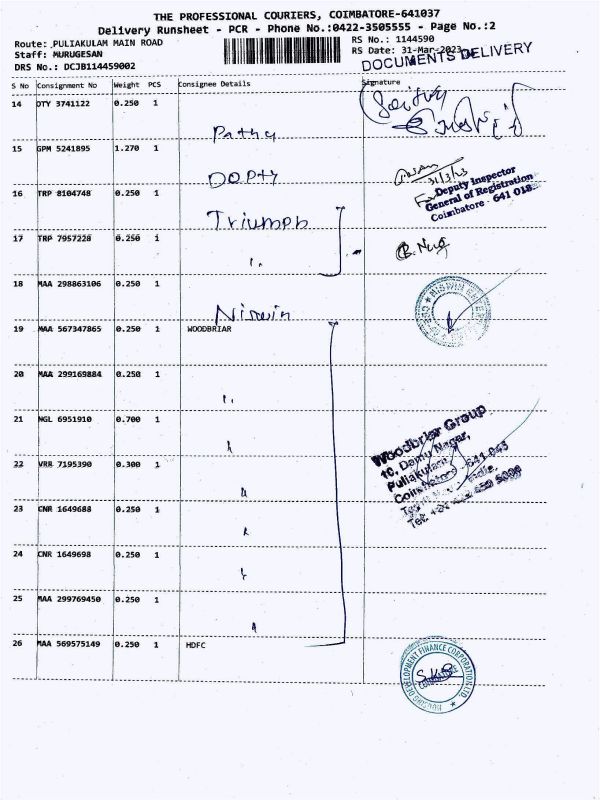 THE PROFESSIONAL COURIERS, COIMBATORE-641037
Delivery Runsheet - PCR - Phone No.:0422-3505555 - Page No.:2
Route: PULIAKULAM MAIN ROAD
RS No.: 1144590
Staff: MURUGESAN
RS Date: 31-Mar-2023
DRS No.: DCJB114459002
DOCUMENTS DELIVERY
S No Consignment No Weight PCS Consignee Details Signature
14 DTY 3741122 0.250 1
Pathy
15 GPM 5241895 1.270 1
DOPTY
31/3/23
Deputy Inspector
General of Registration
Coimbatore - 641 018
16 TRP 8104748 0.250 1
Triumph
17 TRP 7957228 0.250 1
18 MAA 298863106 0.250 1
Niswin
19 MAA 567347865 0.250 1 WOODBRIAR
20 MAA 299169884 0.250 1
21 NGL 6951910 0.700 1
Woodbriar Group
10, Damu Nagar,
Puliakulam
Coimbatore - 641 045
22 VRR 7195390 0.300 1
23 CNR 1649688 0.250 1
24 CNR 1649698 0.250 1
25 MAA 299769450 0.250 1
26 MAA 569575149 0.250 1 HDFC
HOUSING DEVELOPMENT FINANCE CORPORATION LTD.